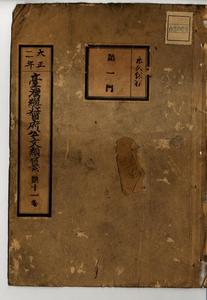 大正
二年
臺灣總督府公文類纂
第十一卷
永久保存
第一門